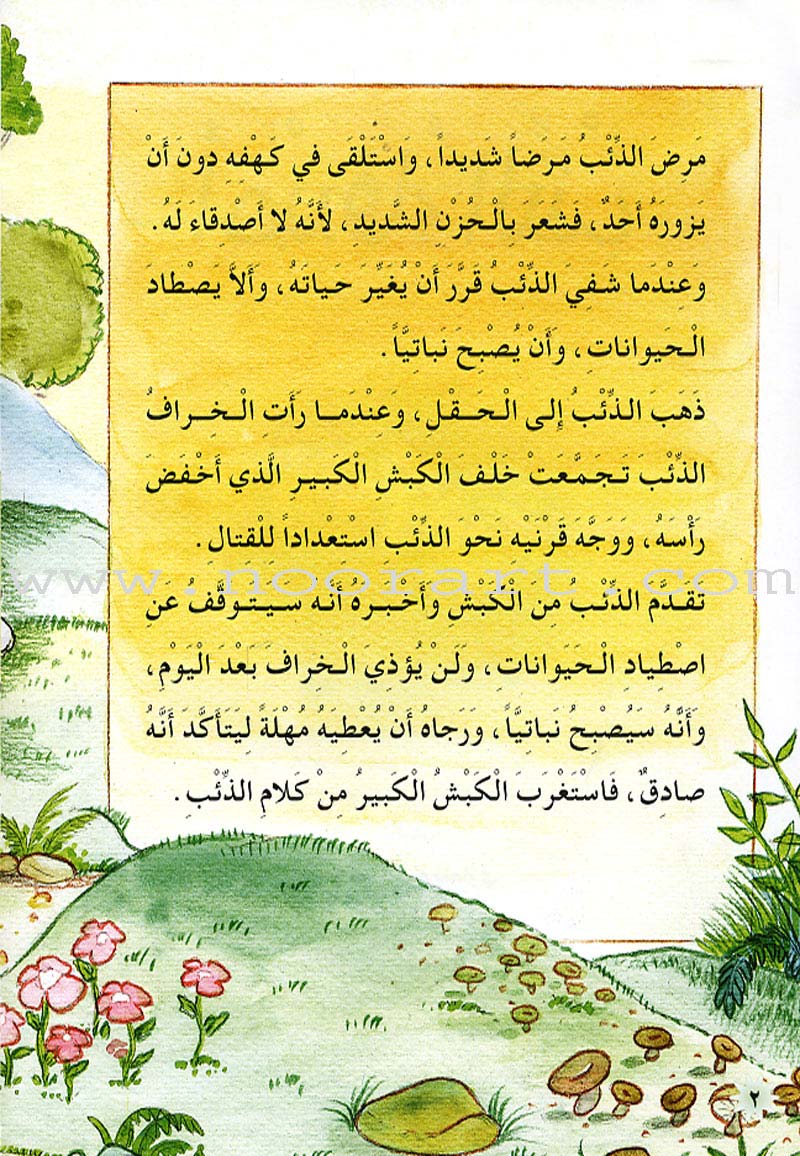 مَرِضَ الذِّئْبُ مَرَضاً شَديداً، وَاسْتَلْقَى في كَهْفِهِ دونَ أَنْ
يَزورَهُ أَحَدٌ، فَشَعَرَ بِالْحُزْنِ الشَّديدِ، لأَنَّهُ لا أَصْدِقاءَ لَهُ.
وَعِنْدَما شَفِيَ الذِّئْبُ قَرَّرَ أَنْ يُغَيِّرَ حَياتَهُ، وَأَلاَّ يَصْطادَ
الْحَيواناتِ، وَأَنْ يُصْبِحَ نَباتِيَّاً.
ذَهَبَ الذِّئْبُ إِلى الْحَقْلِ، وَعِنْدَما رَأَتِ الْخِرافُ
الذِّئْبَ تَجَمَّعَتْ خَلْفَ الْكَبْشِ الْكَبيرِ الَّذي أَخْفَضَ
رَأْسَهُ، وَوَجَّهَ قَرْنَيْهِ نَحْوَ الذِّئْبِ اسْتِعْداداً لِلْقِتالِ.
www.noorart.com
تَقَدَّمَ الذِّئْبُ مِنَ الْكَبْشِ وَأَخْبَرهُ أَنَّه سَيَتَوقَّفُ عَنِ
اصْطِيادِ الْحَيَواناتِ، وَلَنْ يُؤذِيَ الْخِرافَ بَعْدَ الْيَوْمِ،
وَأَنَّهُ سَيُصْبِحُ نَباتِيَّاً، وَرَجاهُ أَنْ يُعْطِيَهُ مُهْلَةً لِيَتَأَكَّدَ أَنَّهُ
صادِقٌ، فَاسْتَغْرَبَ الْكَبْشُ الْكَبيرُ مِنْ كَلامِ الذِّئْبِ.
٢